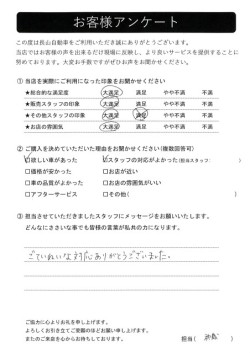 お客様アンケート
この度は長山自動車をご利用いただき誠にありがとうございます。
当店ではお客様の声を出来るだけ現場に反映し、より良いサービスを提供することに
努めております。大変お手数ですがぜひお声をお聞かせください。
① 当店を実際にご利用になった印象をお聞かせください
★総合的な満足度 大満足 満足 やや不満 不満
★販売スタッフの印象 大満足 満足 やや不満 不満
★その他スタッフの印象 大満足 満足 やや不満 不満
★お店の雰囲気 大満足 満足 やや不満 不満
② ご購入を決めていただいた理由をお聞かせください(複数回答可)
□欲しい車があった □スタッフの対応がよかった(担当スタッフ: )
□価格が安かった □お店が近い
□車の品質がよかった □お店の雰囲気がいい
□アフターサービス □その他( )
③ 担当させていただきましたスタッフにメッセージをお願いいたします。
どんなにささいな事でも皆様の言葉が私共の力になります。
ごていねいな対応ありがとうございました。
ご協力に心よりお礼を申し上げます。
よろしくお引き立てご愛顧のほどお願い申し上げます。
またのご来店を心からお待ちしております。
担当( )